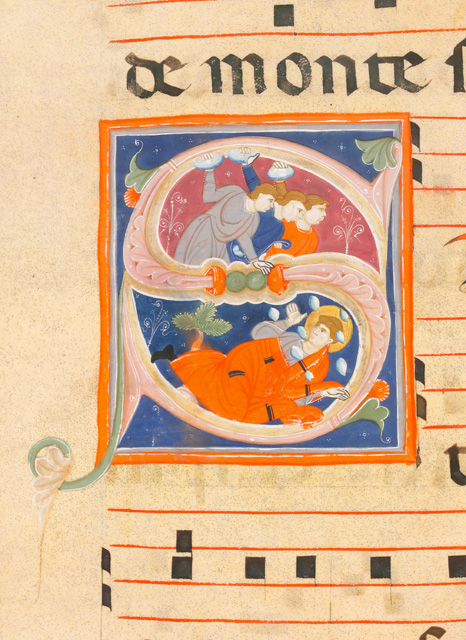 de monte
S